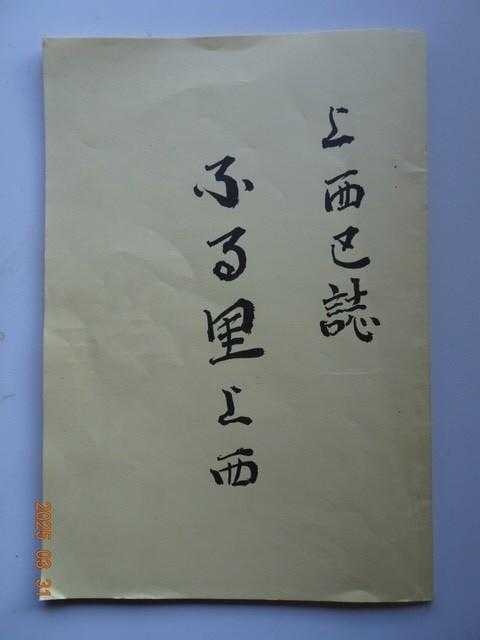 上西区誌
ふる里上西
2025 03 31